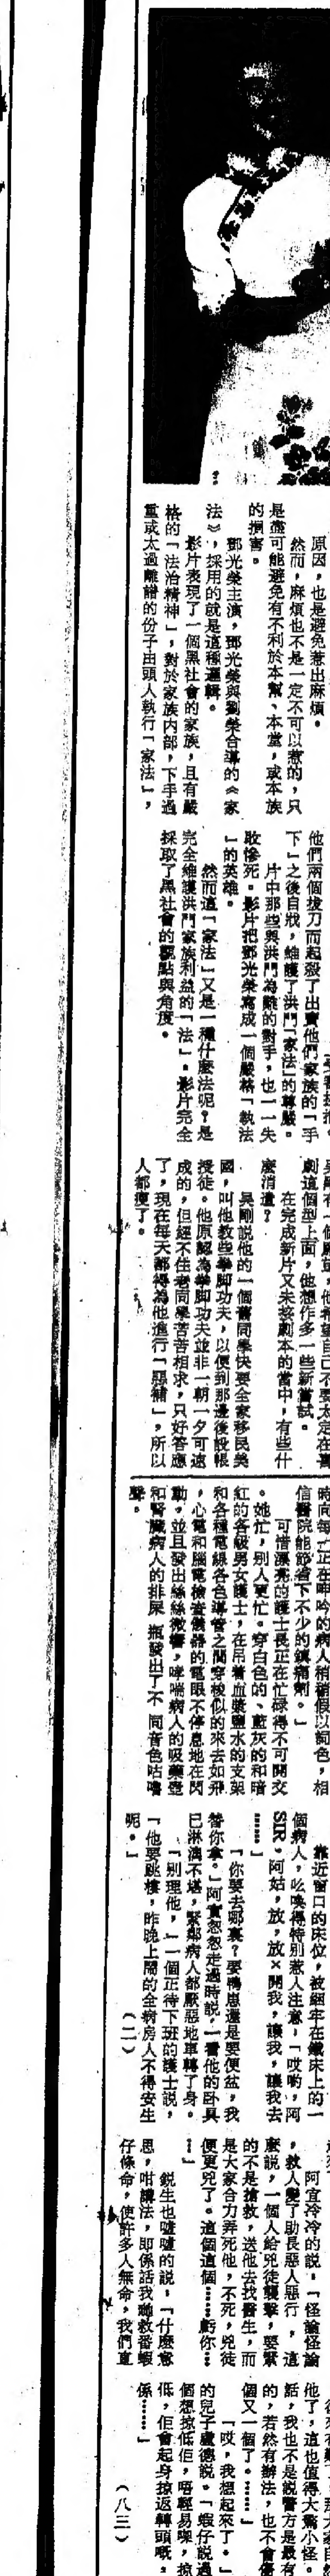 原因，也是避免惹出麻煩。
然而，麻煩也不是一定不可以惹的，只
是盡可能避免有不利於本幫、本堂，或本族
的損害。
鄧光榮主演，鄧光榮與劉榮合導的《家
法》，採用的就是這種邏輯。
影片表現了一個黑社會的家族，且有嚴
格的「法治精神」，對於家族內部，下手過
重或太過離譜的份子由頭人執行「家法」，
他們兩個拔刀而起殺了出賣他們家族的「手
下」之後自戕，維護了洪門「家法」的尊嚴。
片中那些與洪門為難的對手，也一一失
敗慘死。影片把鄧光榮寫成一個嚴格「執法
」的英雄。
然而這「家法」又是一種什麼法呢？是
完全維護洪門家族利益的「法」。影片完全
採取了黑社會的觀點與角度。
劇這個型上面，他想作多一些新嘗試。
在完成新片又未接劇本的當中，有些什
麼消遣？
吳剛說他的一個舊同學快要全家移民美
國，叫他教些拳脚功夫，以便到那邊後設帳
授徒。他原認為拳脚功夫並非一朝一夕可速
成的，但經不住老同學苦苦相求，只好答應
了，現在每天都得為他進行「惡補」，所以
人都瘦了。
時向每一正在呻吟的病人稍稍假以詞色，相
信醫院能節省下不少的鎮痛劑。」
可惜漂亮的護士長正在忙碌得不可開交
。她忙，別人更忙。穿白色的、藍灰的和暗
紅的各級男女護士，在吊着血漿鹽水的支架
和各種電線各色導管之間穿梭似的來去如飛
，心電和腦電檢查儀器的電眼不停息地在閃
動，並且發出絲絲微響，哮喘病人的吸藥壺
和腎臟病人的排尿瓶發出了不同音色咕嚕
聲。
靠近窗口的床位，被綑牢在鐵床上的一
個病人，吆喚得特別惹人注意，「哎喲，阿
SIR，阿姑，放，放×開我，讓我，讓我去
……」
「你要去哪裏？要鴨崽還是要便盆，我
替你拿。」阿寶忽忽走過時說，一看他的臥具
已淋漓不堪，緊鄰病人都厭惡地車轉了身。
「別理他，」一個正待下班的護士說，
「他要跳樓，昨晚上鬧的全病房人不得安生
呢。」
（二）
阿宜冷冷的說。「怪論怪論
，救人變了助長惡人惡行，這
麼說，一個人給兇徒襲擊，要緊
的不是搶救，送他去找醫生，而
是大家合力弄死他，不死，兇徒
便更兇了。這個這個……虧你…
…」
銳生也噓噓的說，「什麼意
思，咁講法，即係話我哋救番蝦
仔條命，使許多人無命，我們直
他了，這也值得大驚小怪。
話，我也不是說警方是最有
的，若然有辦法，也不會傷
個又一個了。……」
「哎，我想起來了。」
的兒子盧德說。「蝦仔說過
個想掠低佢，唔輕易㗎，掠
低，佢會起身掠返轉頭嘅。
係……」
（八三）